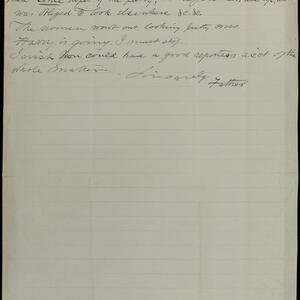 was obliged to look elsewhere &c &c.
The women went out looking pretty cross
Harry is going I must stop.
I wish thou could have a good reporters acct of the
whole matter. Sincerely
Father